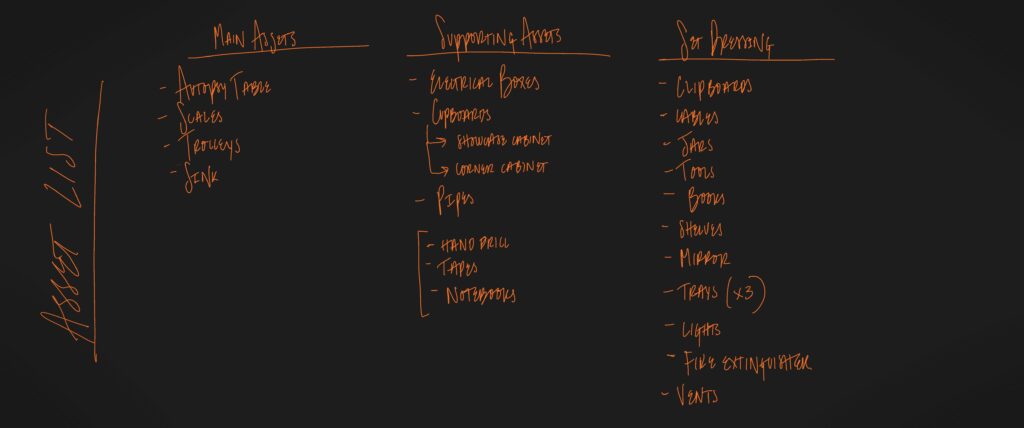 ASSET LIST
MAIN ASSETS
- AUTOPSY TABLE
- SCALES
- TROLLEYS
- SINK
SUPPORTING ASSETS
- ELECTRICAL BOXES
- CUPBOARDS
→ SHOWCASE CABINET
→ CORNER CABINET
- PIPES
- HAND DRILL
- TAPES
- NOTEBOOKS
SET DRESSING
- CLIPBOARDS
- CABLES
- JARS
- TOOLS
- BOOKS
- SHELVES
- MIRROR
- TRAYS (x3)
- LIGHTS
- FIRE EXTINGUISHER
- VENTS